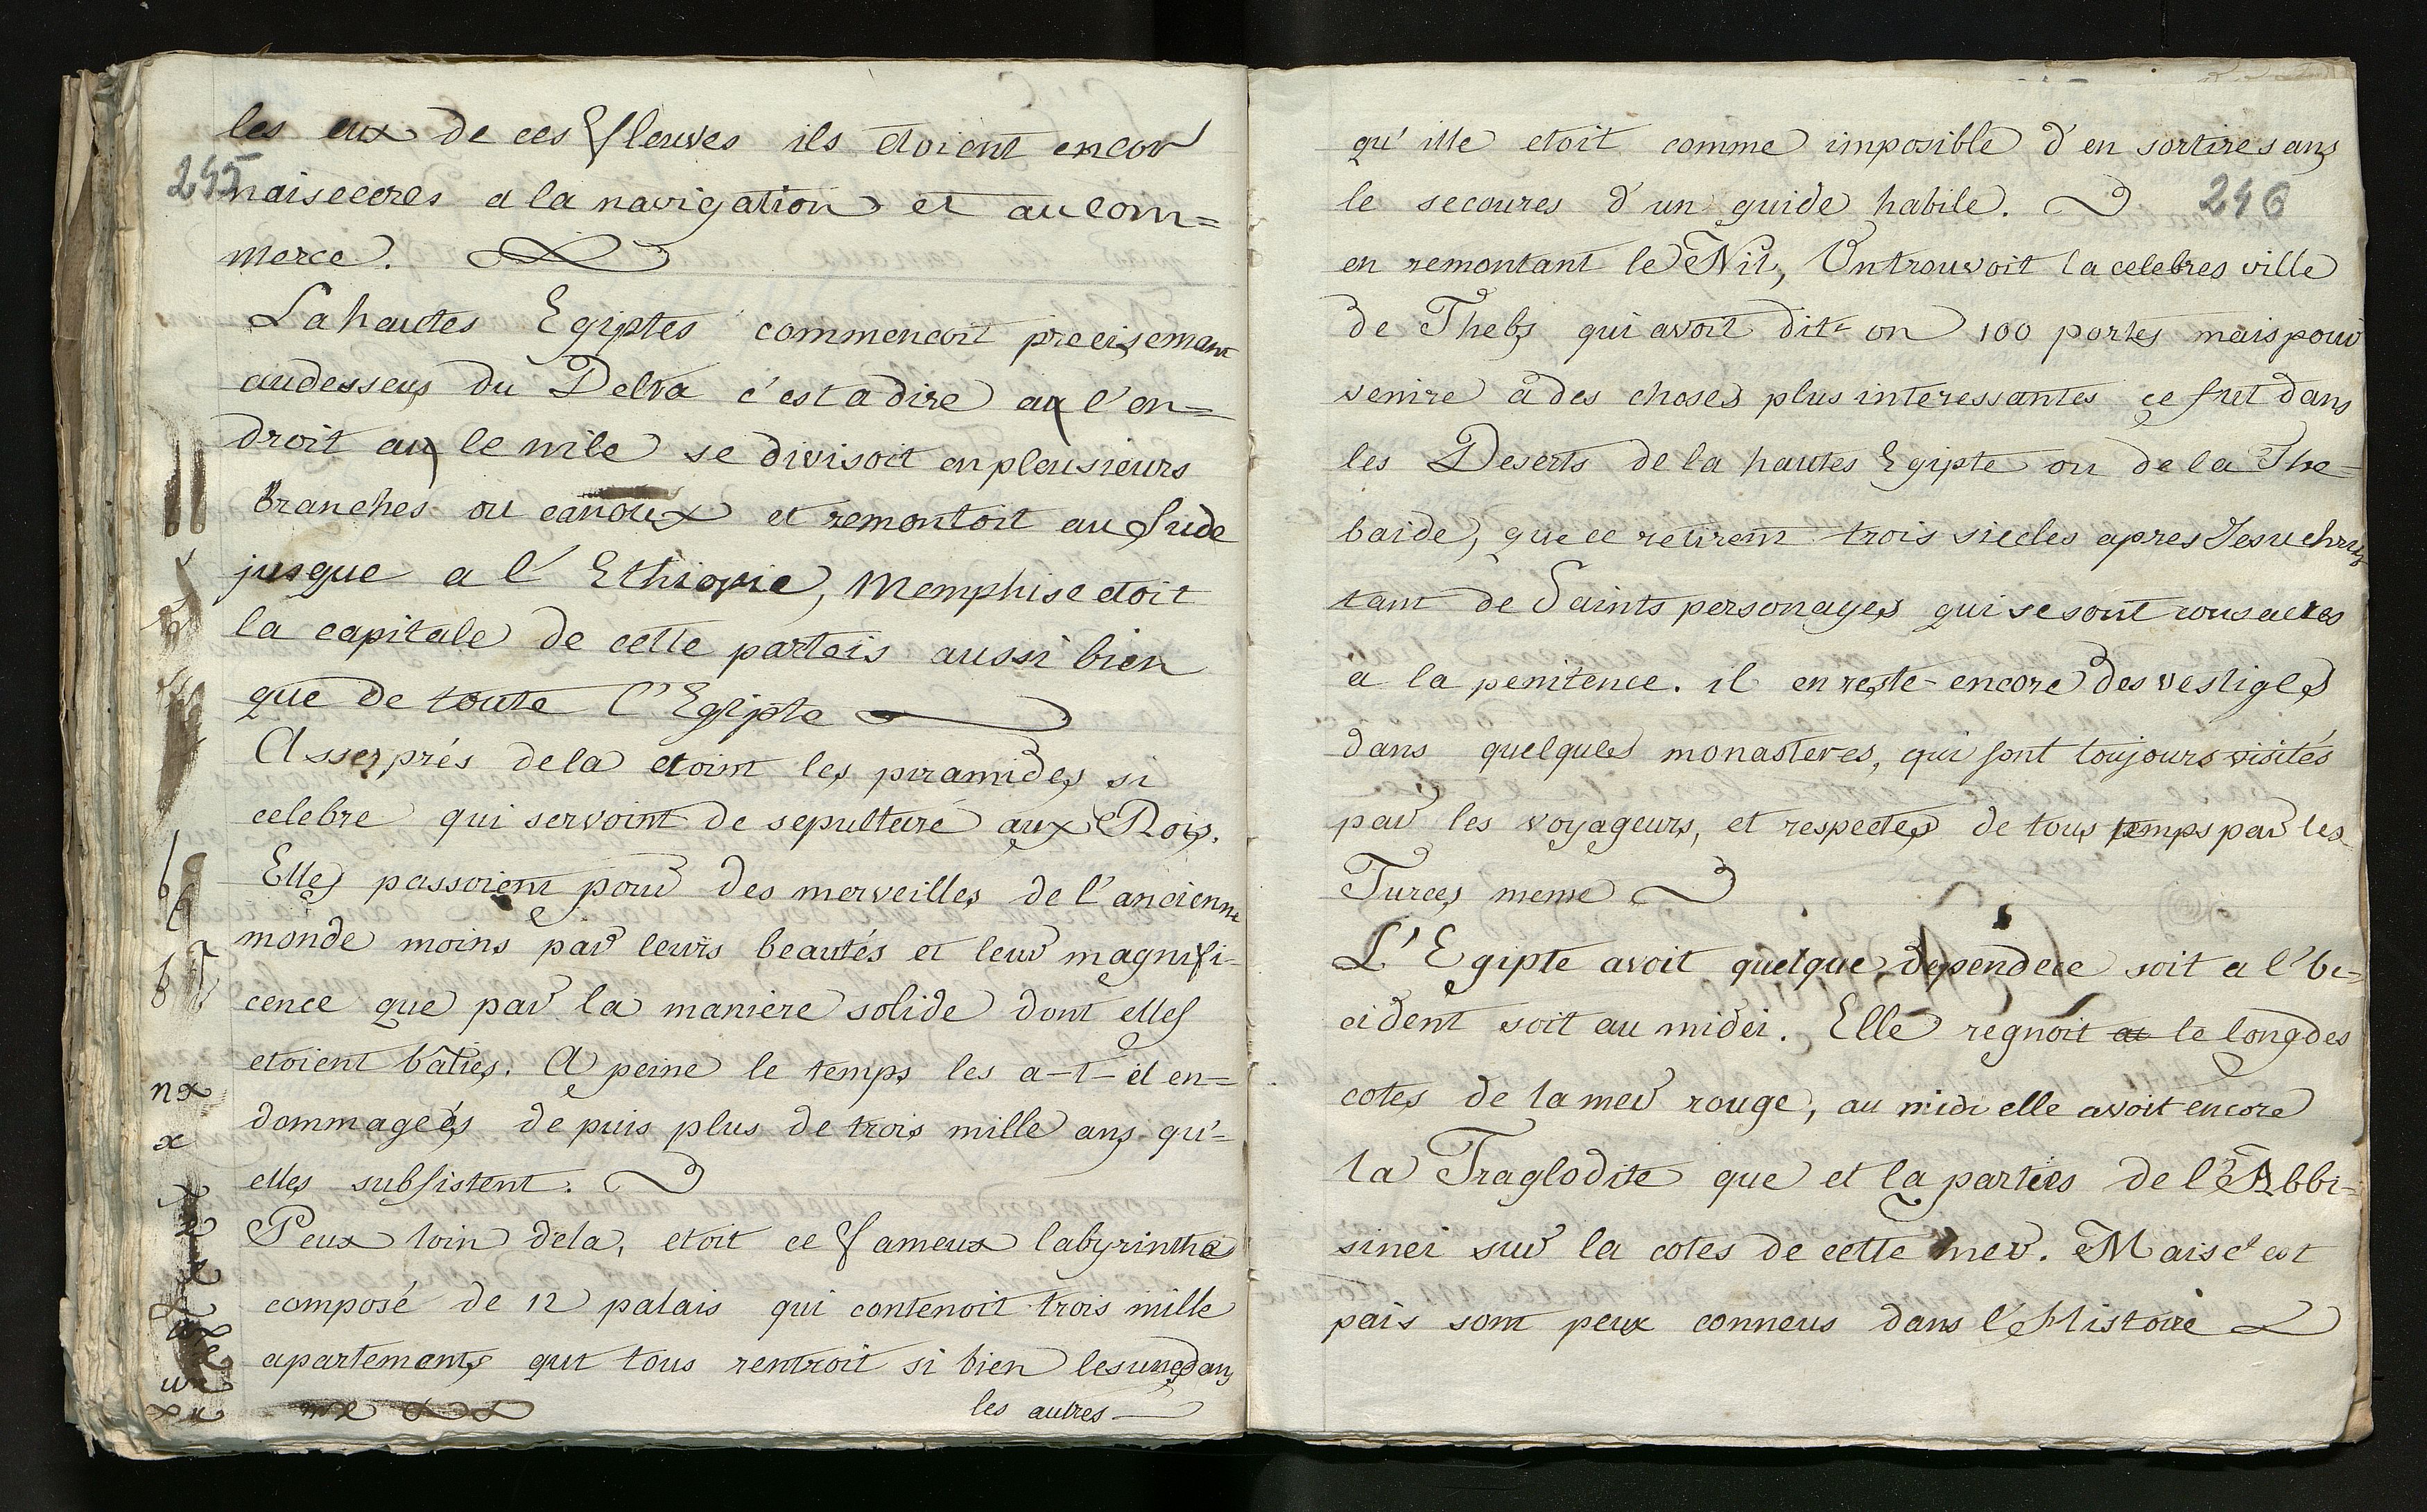 les eux de ces fleuves ils etoient encor
245
naiseceres a la navigation et au com=
merce.
La hautes Egiptes commencoit precisement
audessus du Delta c'est a dire aux l'en=
droit aux le nile se divisoit en pleusieurs
branches ou canoux et remontoit au sude
jusque a l'Ethiopie, Memphise etoit
la capitale de cette parteis aussi bien
que de toute l'Egipte
Assez prés dela etoint les piramides si
celebre qui servoint de sepulture aux Rois.
Elles passoient pour des merveilles de l'ancienne
monde moins par leurs beautés et leur magnifi-
cence que par la maniere solide dont elles
etoient bâties. A peine le temps les a-t-il en=
dommageés depuis plus de trois mille ans qu'=
elles subsistent.
Peux loin dela, etoit ce fameux labyrinthe
composé de 12 palais qui contenoit trois mille
apartements qui tous rentroit si bien les unes dans
les autres
qu'ille etoit comme imposible d'en sortire sans
le secoures d'un guide habile.
246
en remontant le Nil, On trouvoit la celebres ville
de Thebs qui avoit dit-on 100 portes mais pour
venire à des choses plus interessantes ce fut dans
les Deserts de la hautes Egipte ou de la The=
baide, que ce retirent trois siecles apres Jesuchris
tant de Saints personages qui se sont consacres
a la penitence. il en reste encore des vestiges
dans quelques monasteres, qui sont toujours visités
par les voyageurs, et respectes de tous temps par les
Turces meme
L'Egipte avoit quelque dependece soit a l'oc=
cident soit au midei. Elle regnoit le long des
cotes de la mer rouge, au midi elle avoit encore
la Traglodite que et la parties de l'Abbi=
sinei sur la cotes de cette mer. Mais c'est
pais sont peux conneus dans l'Histoire